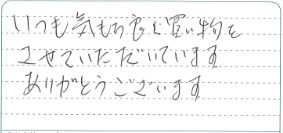 いつも気もち良く買い物を
させていただいています
ありがとうございます